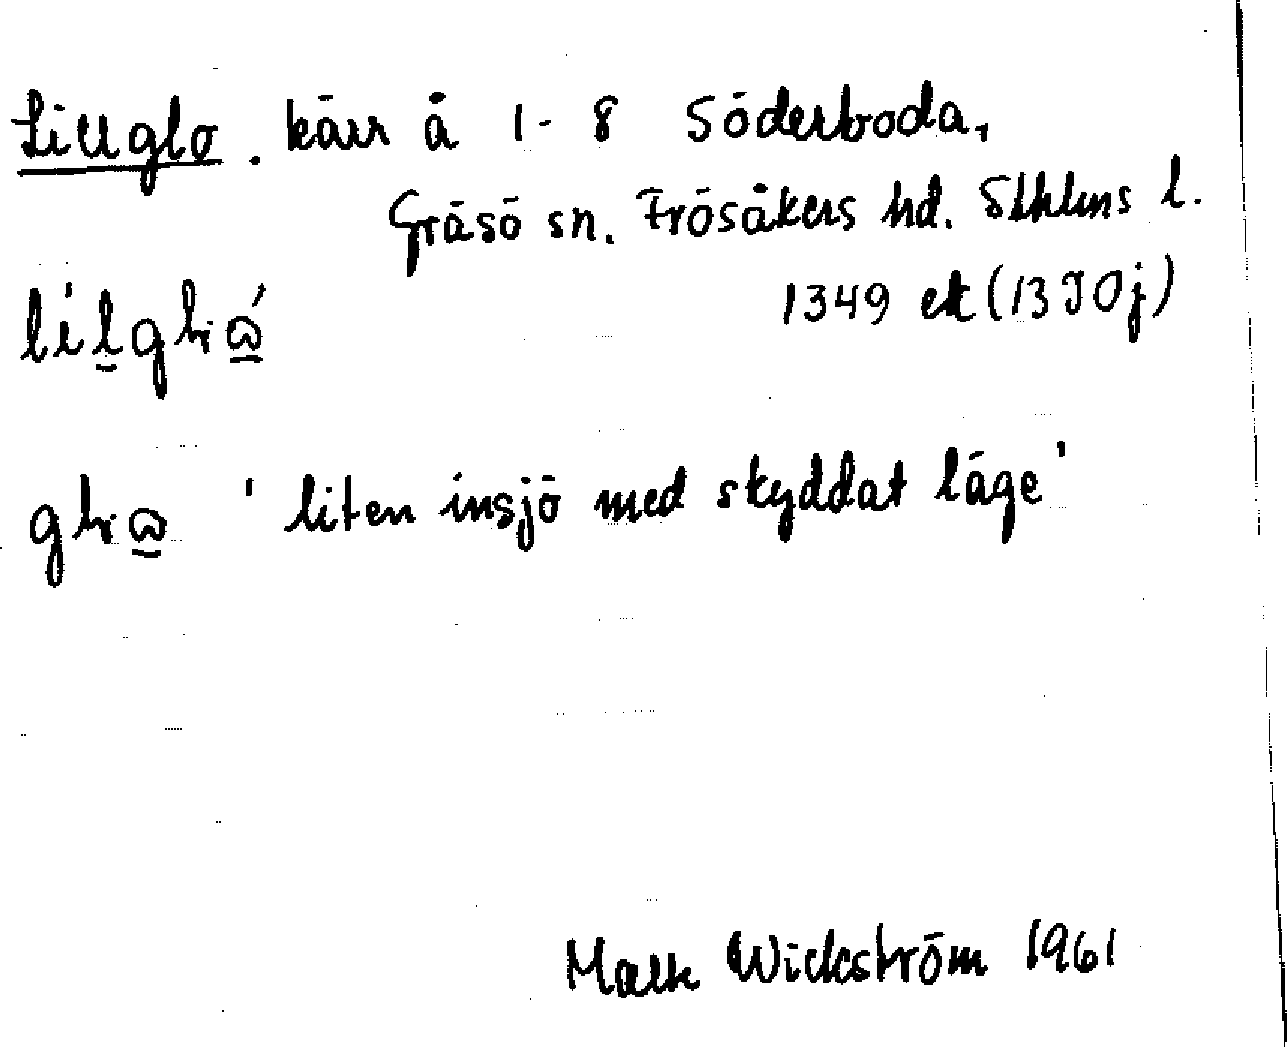 Lillglo. kärr å 1-8 Söderboda,
Gräsö sn. Frösåkers hd. Sthlms l.
1349 ek (13I0j)
glω 'liten insjö med skyddat läge'
Wickström 1961